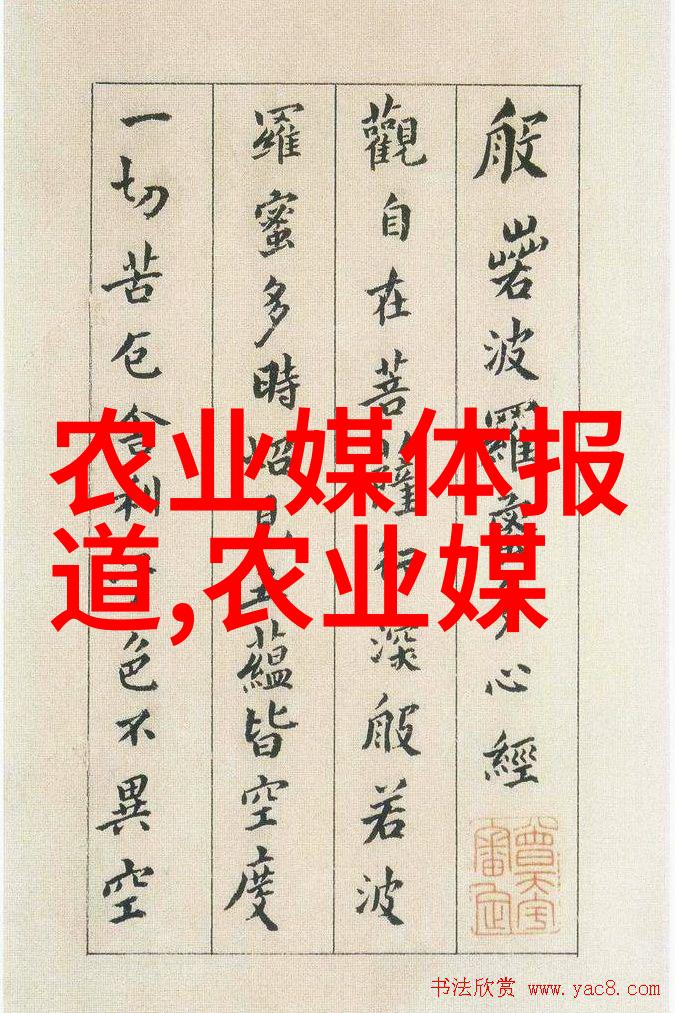 般若波羅蜜多心經
觀自在菩薩行深般若波
羅蜜多時炤見五蘊皆空度
一切苦厄舍利子色不異空
农业媒体报
道,农业媒
书法欣赏 www.yac8.com